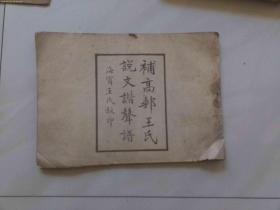 補高郵王氏
說文諧聲譜
海甯王氏校印